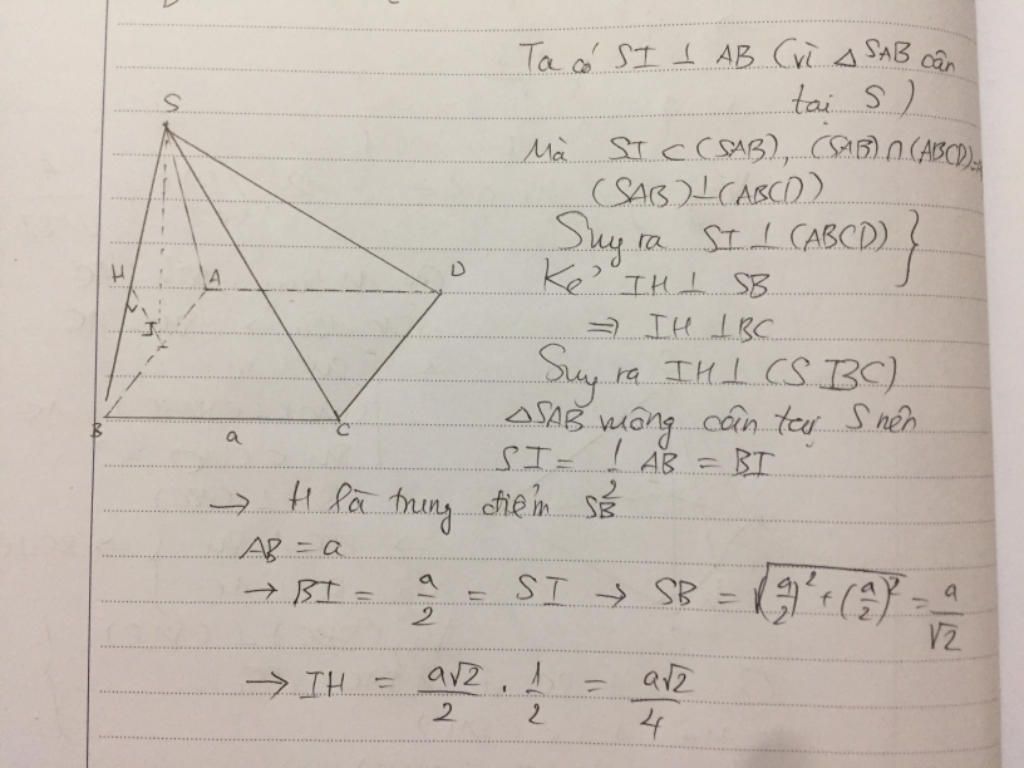 Ta có SI ⊥ AB (vì △SAB cân
tại S)
Mà SI ⊂ (SAB), (SAB) ∩ (ABCD) =
(SAB) ⊥ (ABCD)
Suy ra SI ⊥ (ABCD) }
Kẻ IH ⊥ SB
⇒ IH ⊥ BC
Suy ra IH ⊥ (SBC)
△SAB vuông cân tại S nên
SI = 1/2 AB = BI
→ H là trung điểm SB
AB = a
→ BI = a/2 = SI → SB = √((a/2)² + (a/2)²) = a/√2
→ IH = a√2/2 . 1/2 = a√2/4
S
H
A
D
I
B
a
C